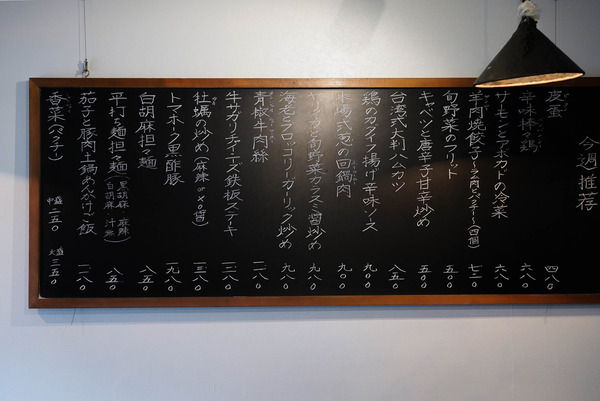 今週推荐
皮蛋 四八〇
辛味棒々鶏 六八〇
サーモンとアボカドの冷菜 六八〇
羊肉焼餃子(ラム肉とパクチー)(四個) 七二〇
旬野菜のフリット 五八〇
キャベツと唐辛子甘辛炒め 五八〇
台湾式大判ハムカツ 八五〇
鶏のカダイフ揚げ辛味ソース 九八〇
の回鍋肉 九八〇
と旬野菜カラスミ醤炒め 九八〇
海老とブロッコリーガーリック炒め 九八〇
青椒牛肉絲 一二八〇
牛ガリチーズ鉄板ステーキ 一二八〇
牡蠣の炒め(麻辣 or XO醤) 一三八〇
トマホーク黒酢豚 一九八〇
白胡麻担々麺 八五〇
平打ち麺担々麺(黒胡麻・麻辣 白胡麻・汁無) 八五〇
茄子と豚肉土鍋あんかけご飯 一一八〇
香菜(パクチー) 中盛 二五〇 大盛 三五〇